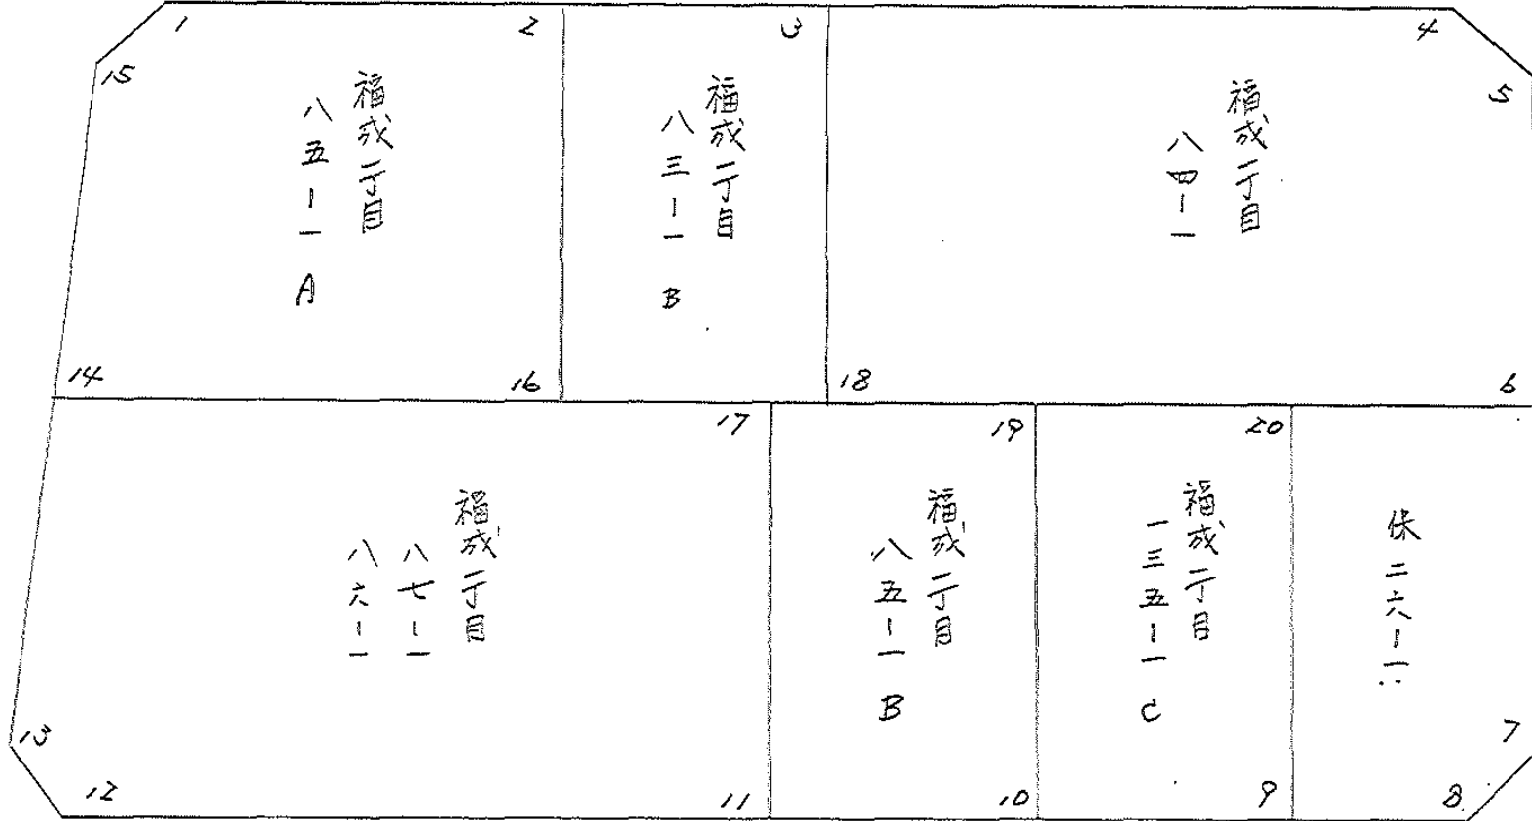 1
2
3
4
5
15
福成二丁目
八五-一 A
福成二丁目
八三-一 B
福成二丁目
八四-一
14
16
18
6
17
19
20
福成二丁目
八七-一
八六-一
福成二丁目
八五-一 B
福成二丁目
一三五-一 C
保二六-一
13
12
11
10
9
8
7